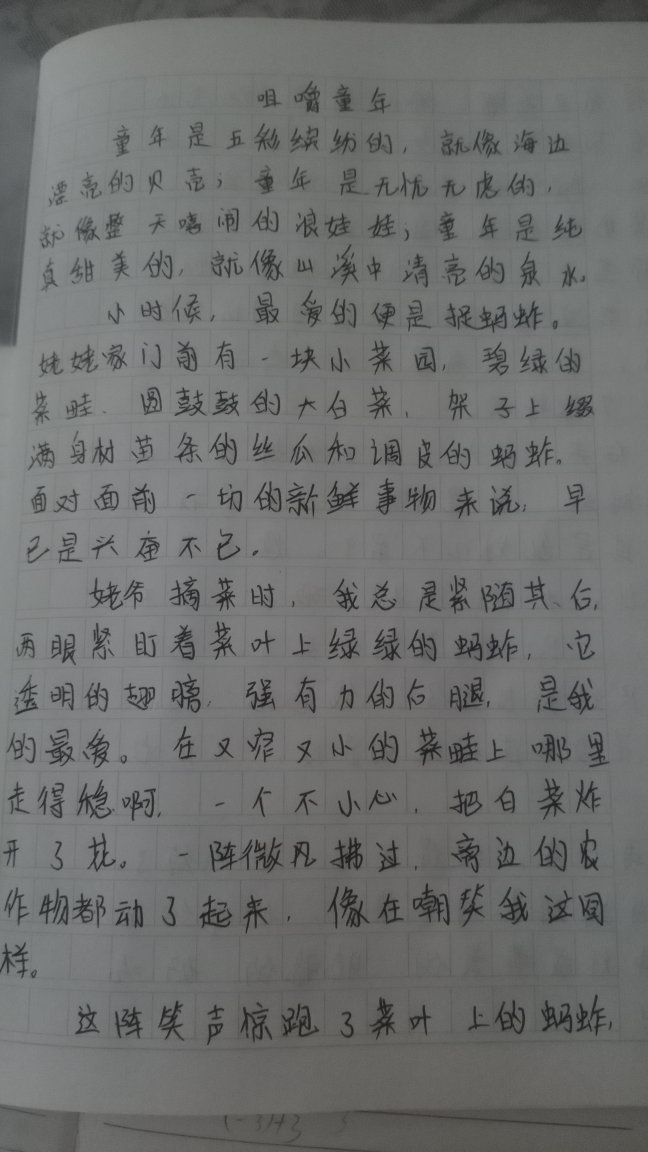 咀嚼童年
童年是五彩缤纷的，就像海边
漂亮的贝壳；童年是无忧无虑的，
就像整天嘻闹的浪娃娃；童年是纯
真甜美的，就像山溪中清亮的泉水。
小时候，最爱的便是捉蚂蚱。
姥姥家门前有一块小菜园，碧绿的
菜畦、圆鼓鼓的大白菜，架子上缀
满身材苗条的丝瓜和调皮的蚂蚱。
面对面前一切的新鲜事物来说，早
已是兴奋不已。
姥爷摘菜时，我总是紧随其后，
两眼紧盯着菜叶上绿绿的蚂蚱，它
透明的翅膀，强有力的后腿，是我
的最爱。在又窄又小的菜畦上哪里
走得稳啊，一个不小心，把白菜炸
开了花。一阵微风拂过，旁边的农
作物都动了起来，像在嘲笑我这囧
样。
这阵笑声惊跑了菜叶上的蚂蚱，